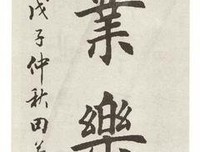 業樂
戊子仲秋田